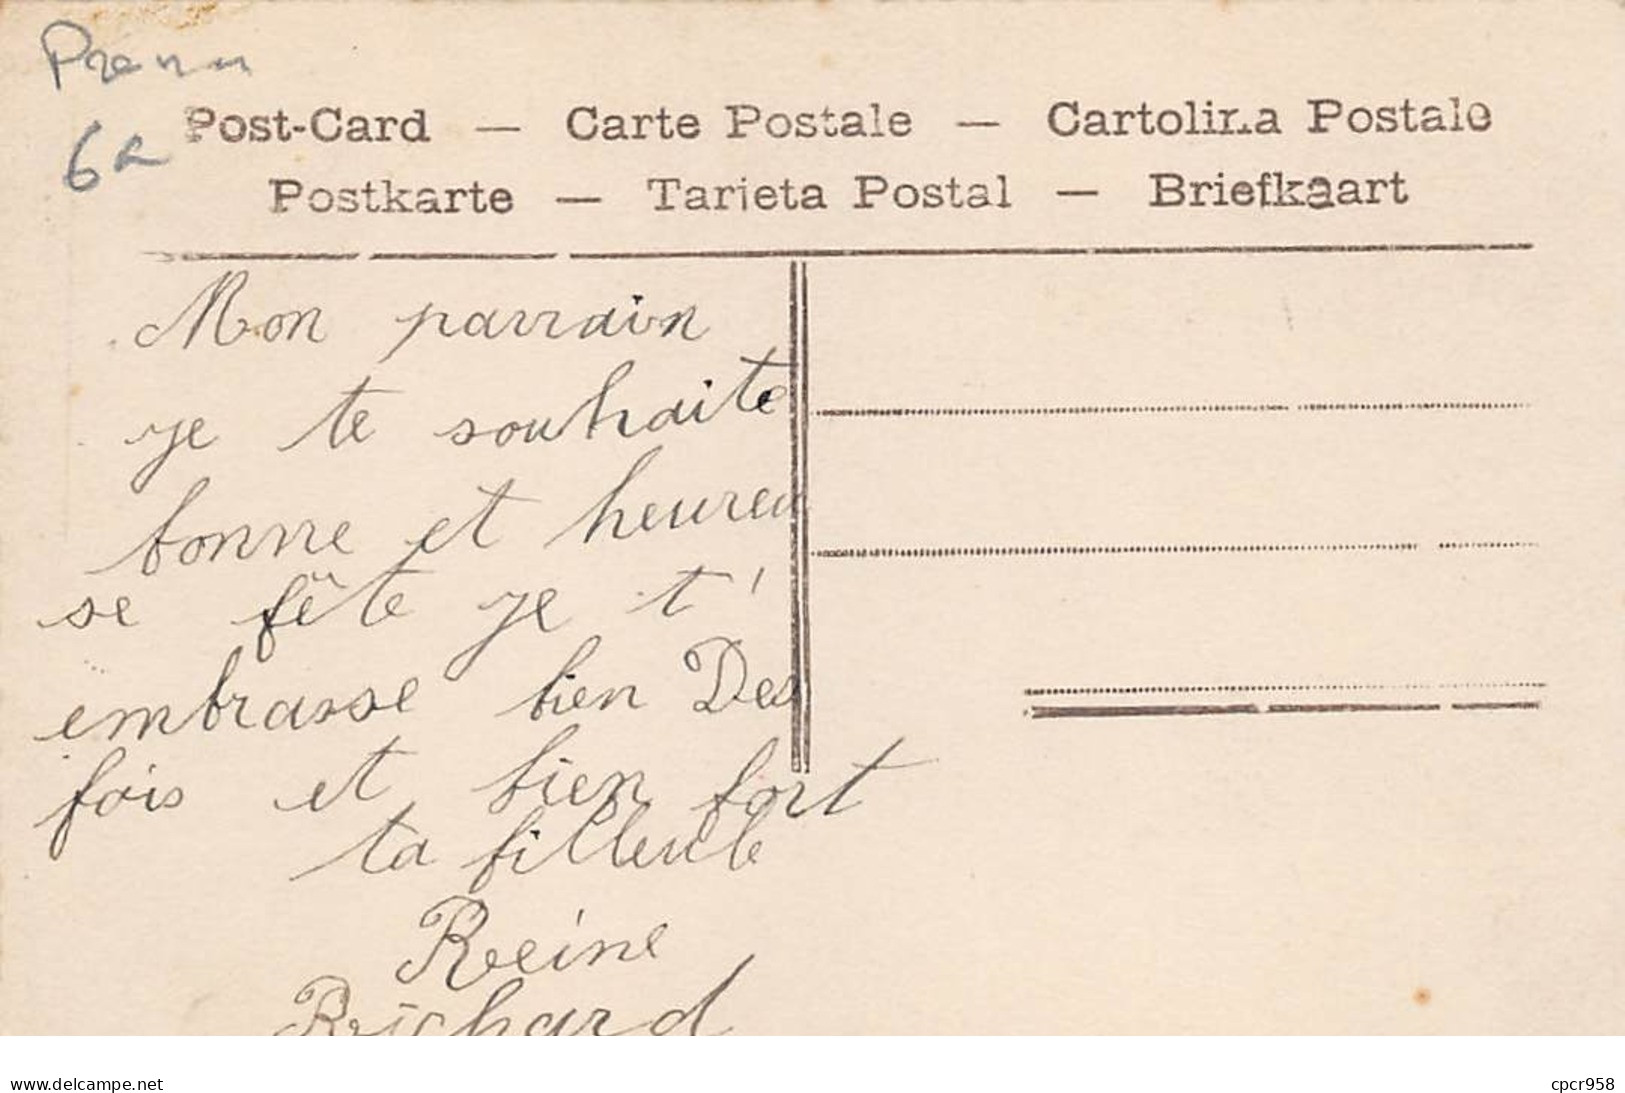 Prenn
6R
Post-Card — Carte Postale — Cartolina Postale
Postkarte — Tarieta Postal — Briefkaart
Mon parrain
je te souhaite
bonne et heureu
se fête je t'
embrasse bien Des
fois et bien fort
ta filleule
Reine
Richard
www.delcampe.net
cpcr958